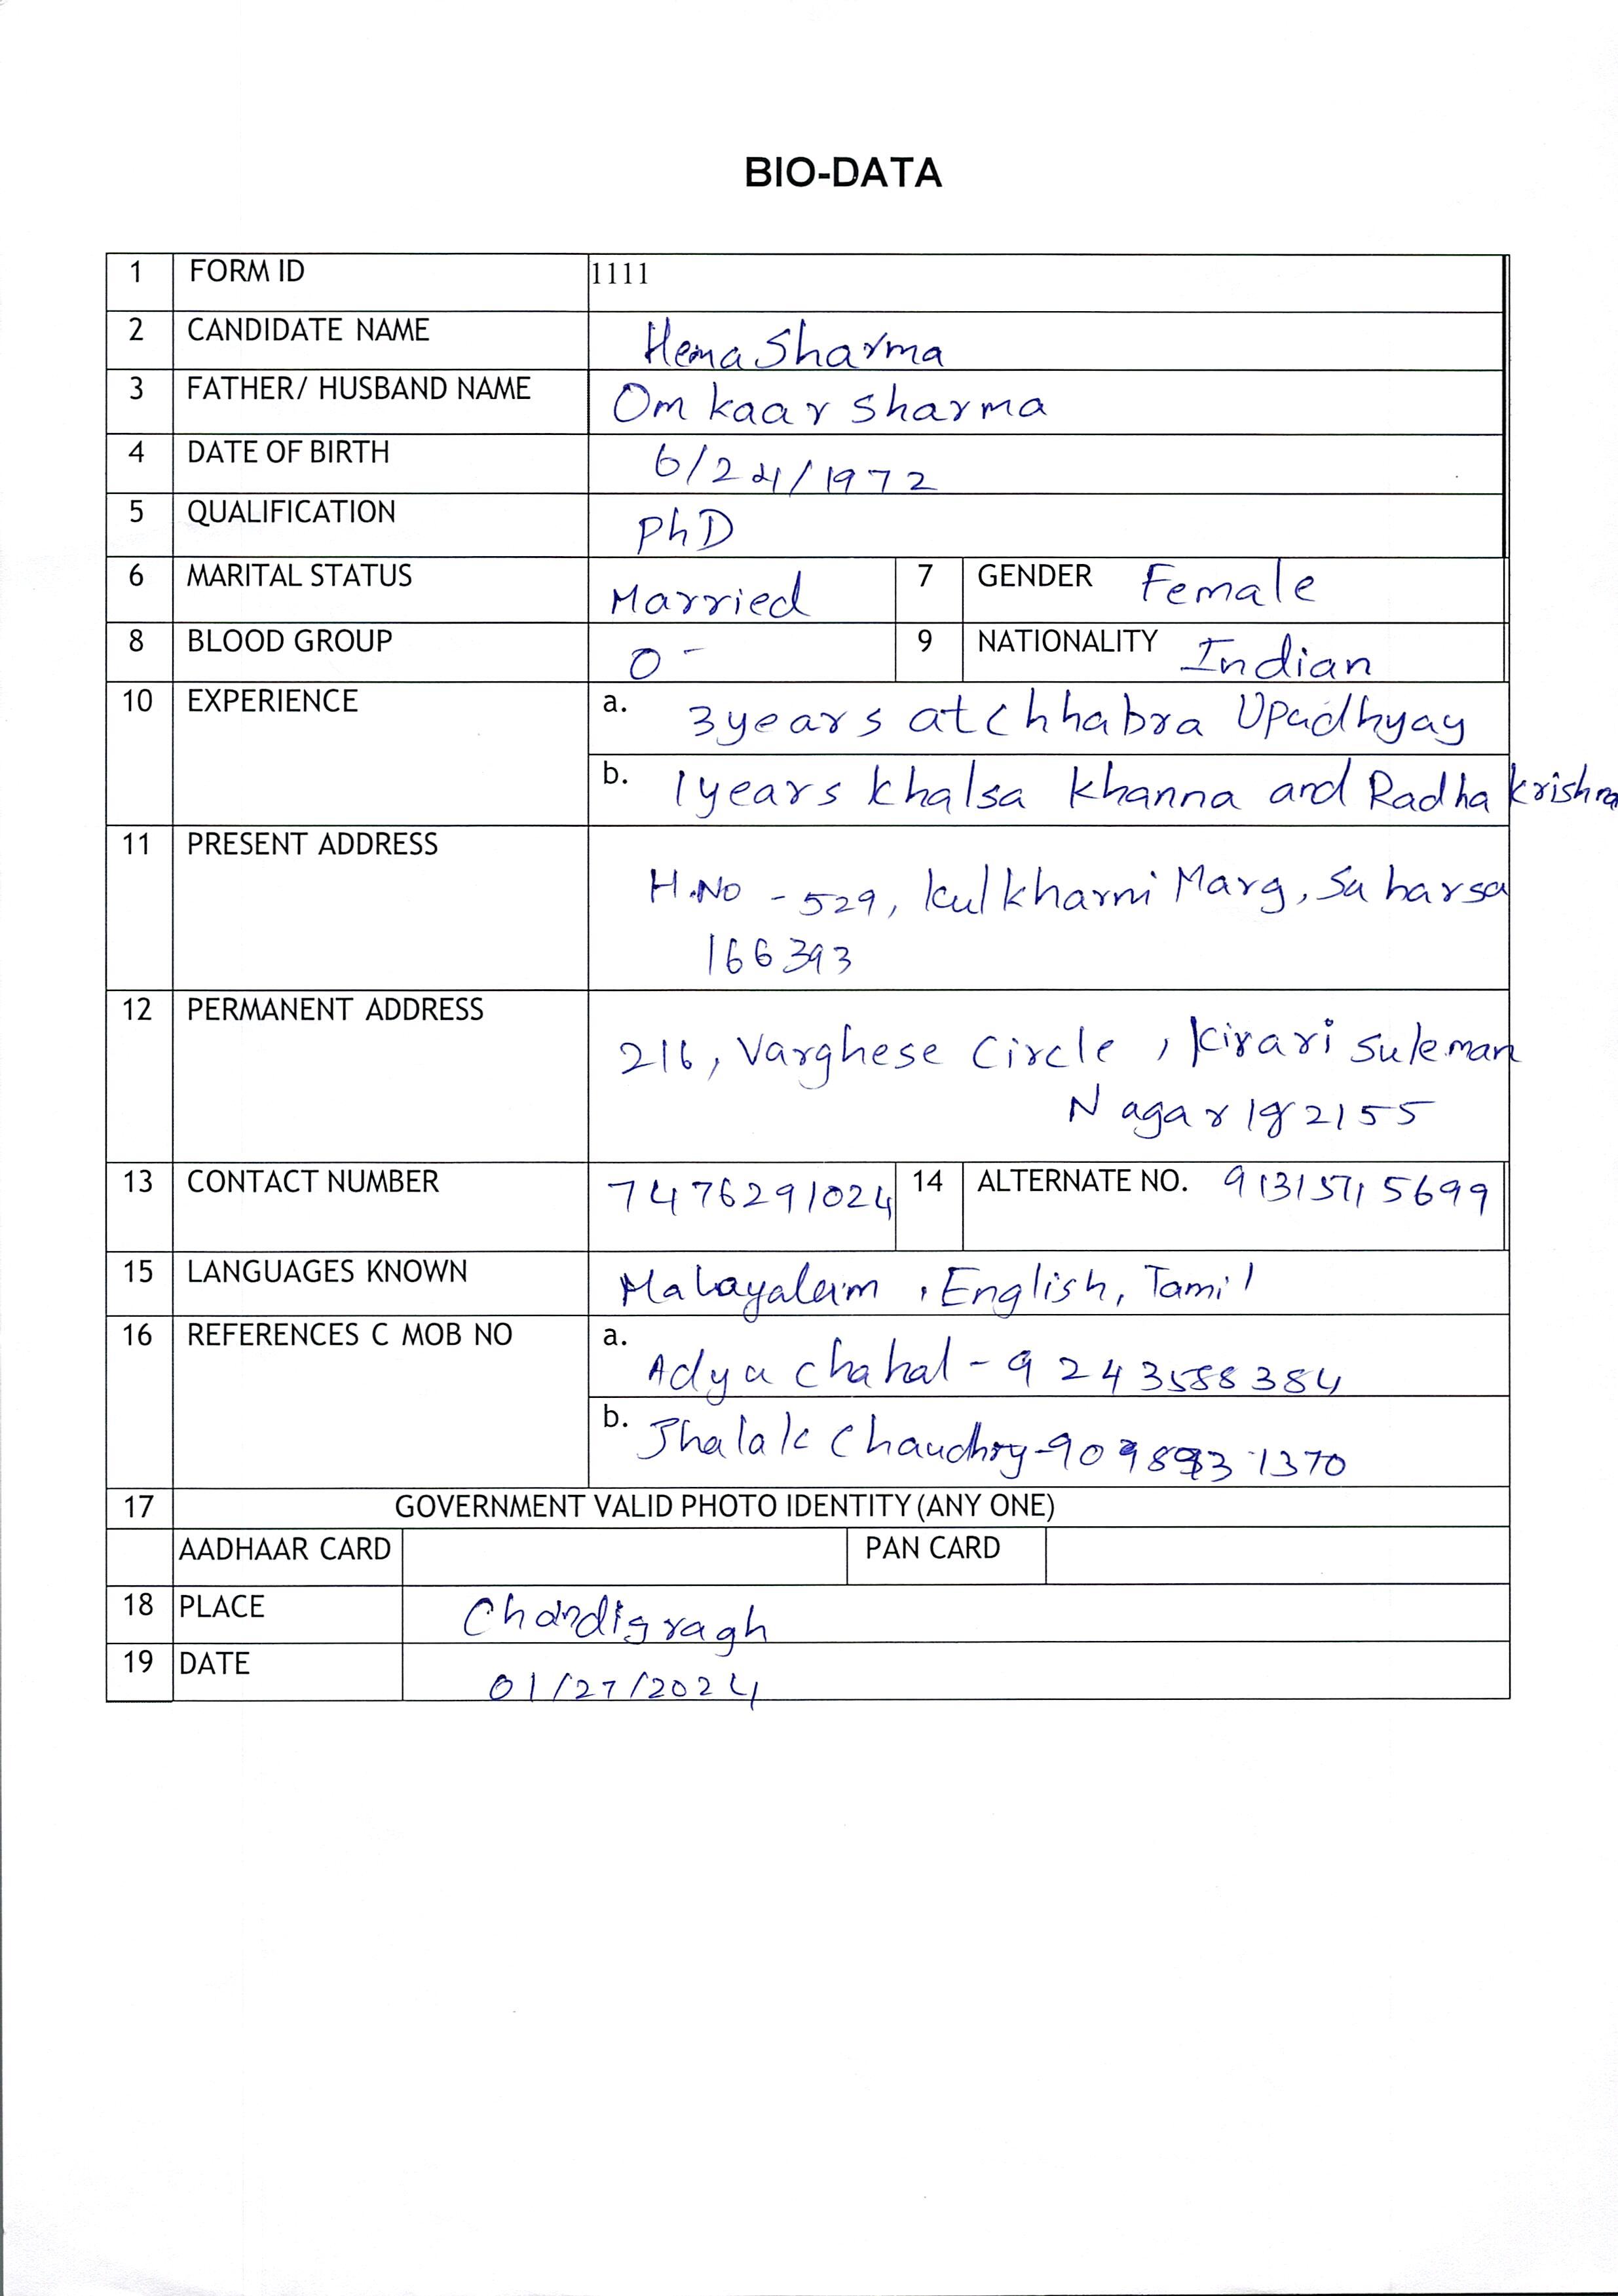 BIO-DATA
1 FORM ID 1111
2 CANDIDATE NAME Hema Sharma
3 FATHER/ HUSBAND NAME Om kaar Sharma
4 DATE OF BIRTH 6/24/1972
5 QUALIFICATION PhD
6 MARITAL STATUS Married 7 GENDER Female
8 BLOOD GROUP O- 9 NATIONALITY Indian
10 EXPERIENCE a. 3 years at Chhabra Upadhyay
b. 1 years Khalsa Khanna and Radhakrishna
11 PRESENT ADDRESS
H.No - 529, Kulkharni Marg, Saharsa
166393
12 PERMANENT ADDRESS
216, Varghese Circle, Kirari Suleman
Nagar 182155
13 CONTACT NUMBER 7476291024 14 ALTERNATE NO.
15 LANGUAGES KNOWN Malayalam, English, Tamil
16 REFERENCES C MOB NO a. Adya Chahal - 9243588384
b. Jhalak Chaudhry -
17 GOVERNMENT VALID PHOTO IDENTITY (ANY ONE)
AADHAAR CARD PAN CARD
18 PLACE Chandigragh
19 DATE 01/27/2024